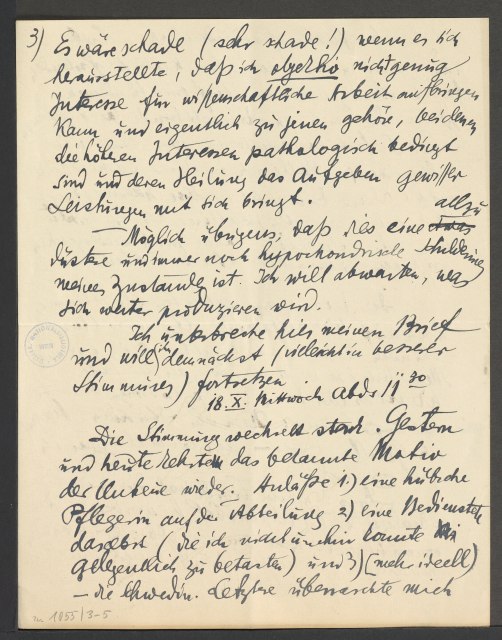 3) Es wäre schade (sehr schade!) wenn es sich
herausstellte, daß ich nicht genug
Interesse für wissenschaftliche Arbeit aufbringen
kann und eigentlich zu jenen gehöre, bei denen
die höheren Interessen pathologisch bedingt
sind und deren Heilung das Aufgeben gewisser
Leistungen mit sich bringt.
— Möglich übrigens, daß dies eine allzu
düstere und immer noch hypochondrische Schilderung
meines Zustandes ist. Ich will abwarten, was
sich weiter produzieren wird.
Ich unterbreche hier meinen Brief
und will ihn demnächst (vielleicht in besserer
Stimmung) fortsetzen
18. X. Mittwoch Abds 11 30
Die Stimmung wechselt stark. Gestern
und heute kehrte das bekannte Motiv
der Untreue wieder. Anläße 1) eine hübsche
Pflegerin auf der Abteilung 2) eine Bedienstete
daselbst (die ich nicht umhin konnte
gelegentlich zu betasten) und 3) (mehr ideell)
— die Schwedin. Letztere überraschte mich
1055/3-5